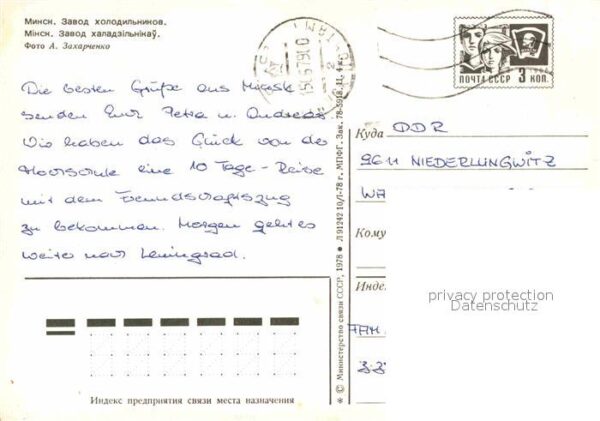 Минск. Завод холодильников.
Мінск. Завод халадзільнікаў.
Фото А. Захарченко
Die besten Grüße aus Minsk
senden Euch Petra u. Andreas.
Wir haben das Glück von der
Hochschule eine 10 Tage-Reise
mit dem Freundschaftszug
zu bekommen. Morgen geht es
weiter nach Leningrad.
ПОЧТА СССР 3 КОП.
Куда DDR
9611 NIEDERLUNGWITZ
Кому
Индекс предприятия связи места назначения
* © Министерство связи СССР, 1978 ● Л 91242 10/I-78 г. МПФГ. Зак. 78-5918. II. 4 к.
privacy protection
Datenschutz